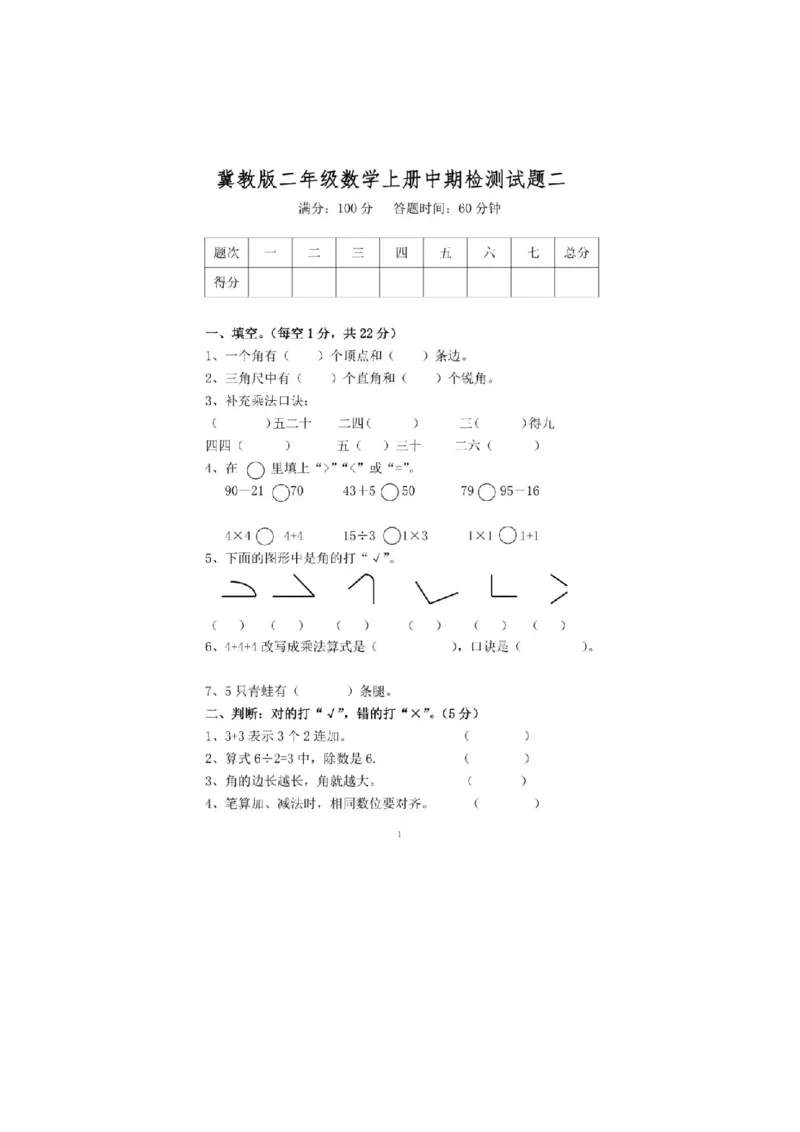 冀教版二年级数学上册中期检测试题二
满分：100分 答题时间：60分钟
题次 一 二 三 四 五 六 七 总分
得分
一、填空。（每空1分，共22分）
1、一个角有（ ）个顶点和（ ）条边。
2、三角尺中有（ ）个直角和（ ）个锐角。
3、补充乘法口诀：
（ ）五二十 二四（ ） 三（ ）得九
四四（ ） 五（ ）三十 二六（ ）
4、在 ○ 里填上“>”“<”或“=”。
90－21 ○ 70 43＋5 ○ 50 79 ○ 95－16
4×4 ○ 4+4 15÷3 ○ 1×3 1×1 ○ 1+1
5、下面的图形中是角的打“√”。
（ ） （ ） （ ） （ ） （ ） （ ）
6、4+4+4改写成乘法算式是（ ），口诀是（ ）。
7、5只青蛙有（ ）条腿。
二、判断：对的打“√”，错的打“×”。（5分）
1、3+3表示3个2连加。 （ ）
2、算式6÷2=3中，除数是6. （ ）
3、角的边长越长，角就越大。 （ ）
4、笔算加、减法时，相同数位要对齐。 （ ）
1